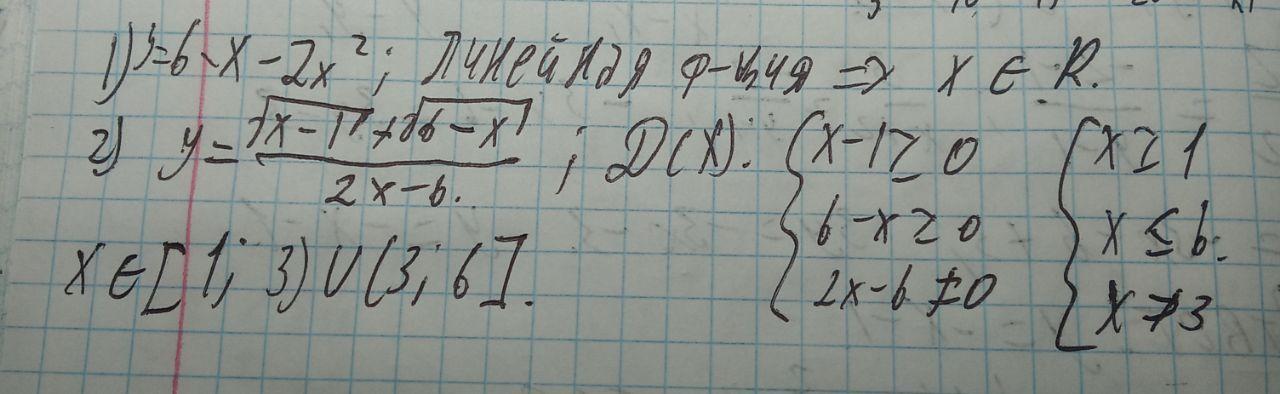 1) y=6-x-2x²; линейная ф-ция ⇒ x ∈ R.
2) y = (√(x-1) + √(6-x))/(2x-6); D(x): {x-1≥0 {x≥1
6-x≥0 x≤6.
2x-6≠0 x≠3
x∈[1; 3)∪(3; 6].